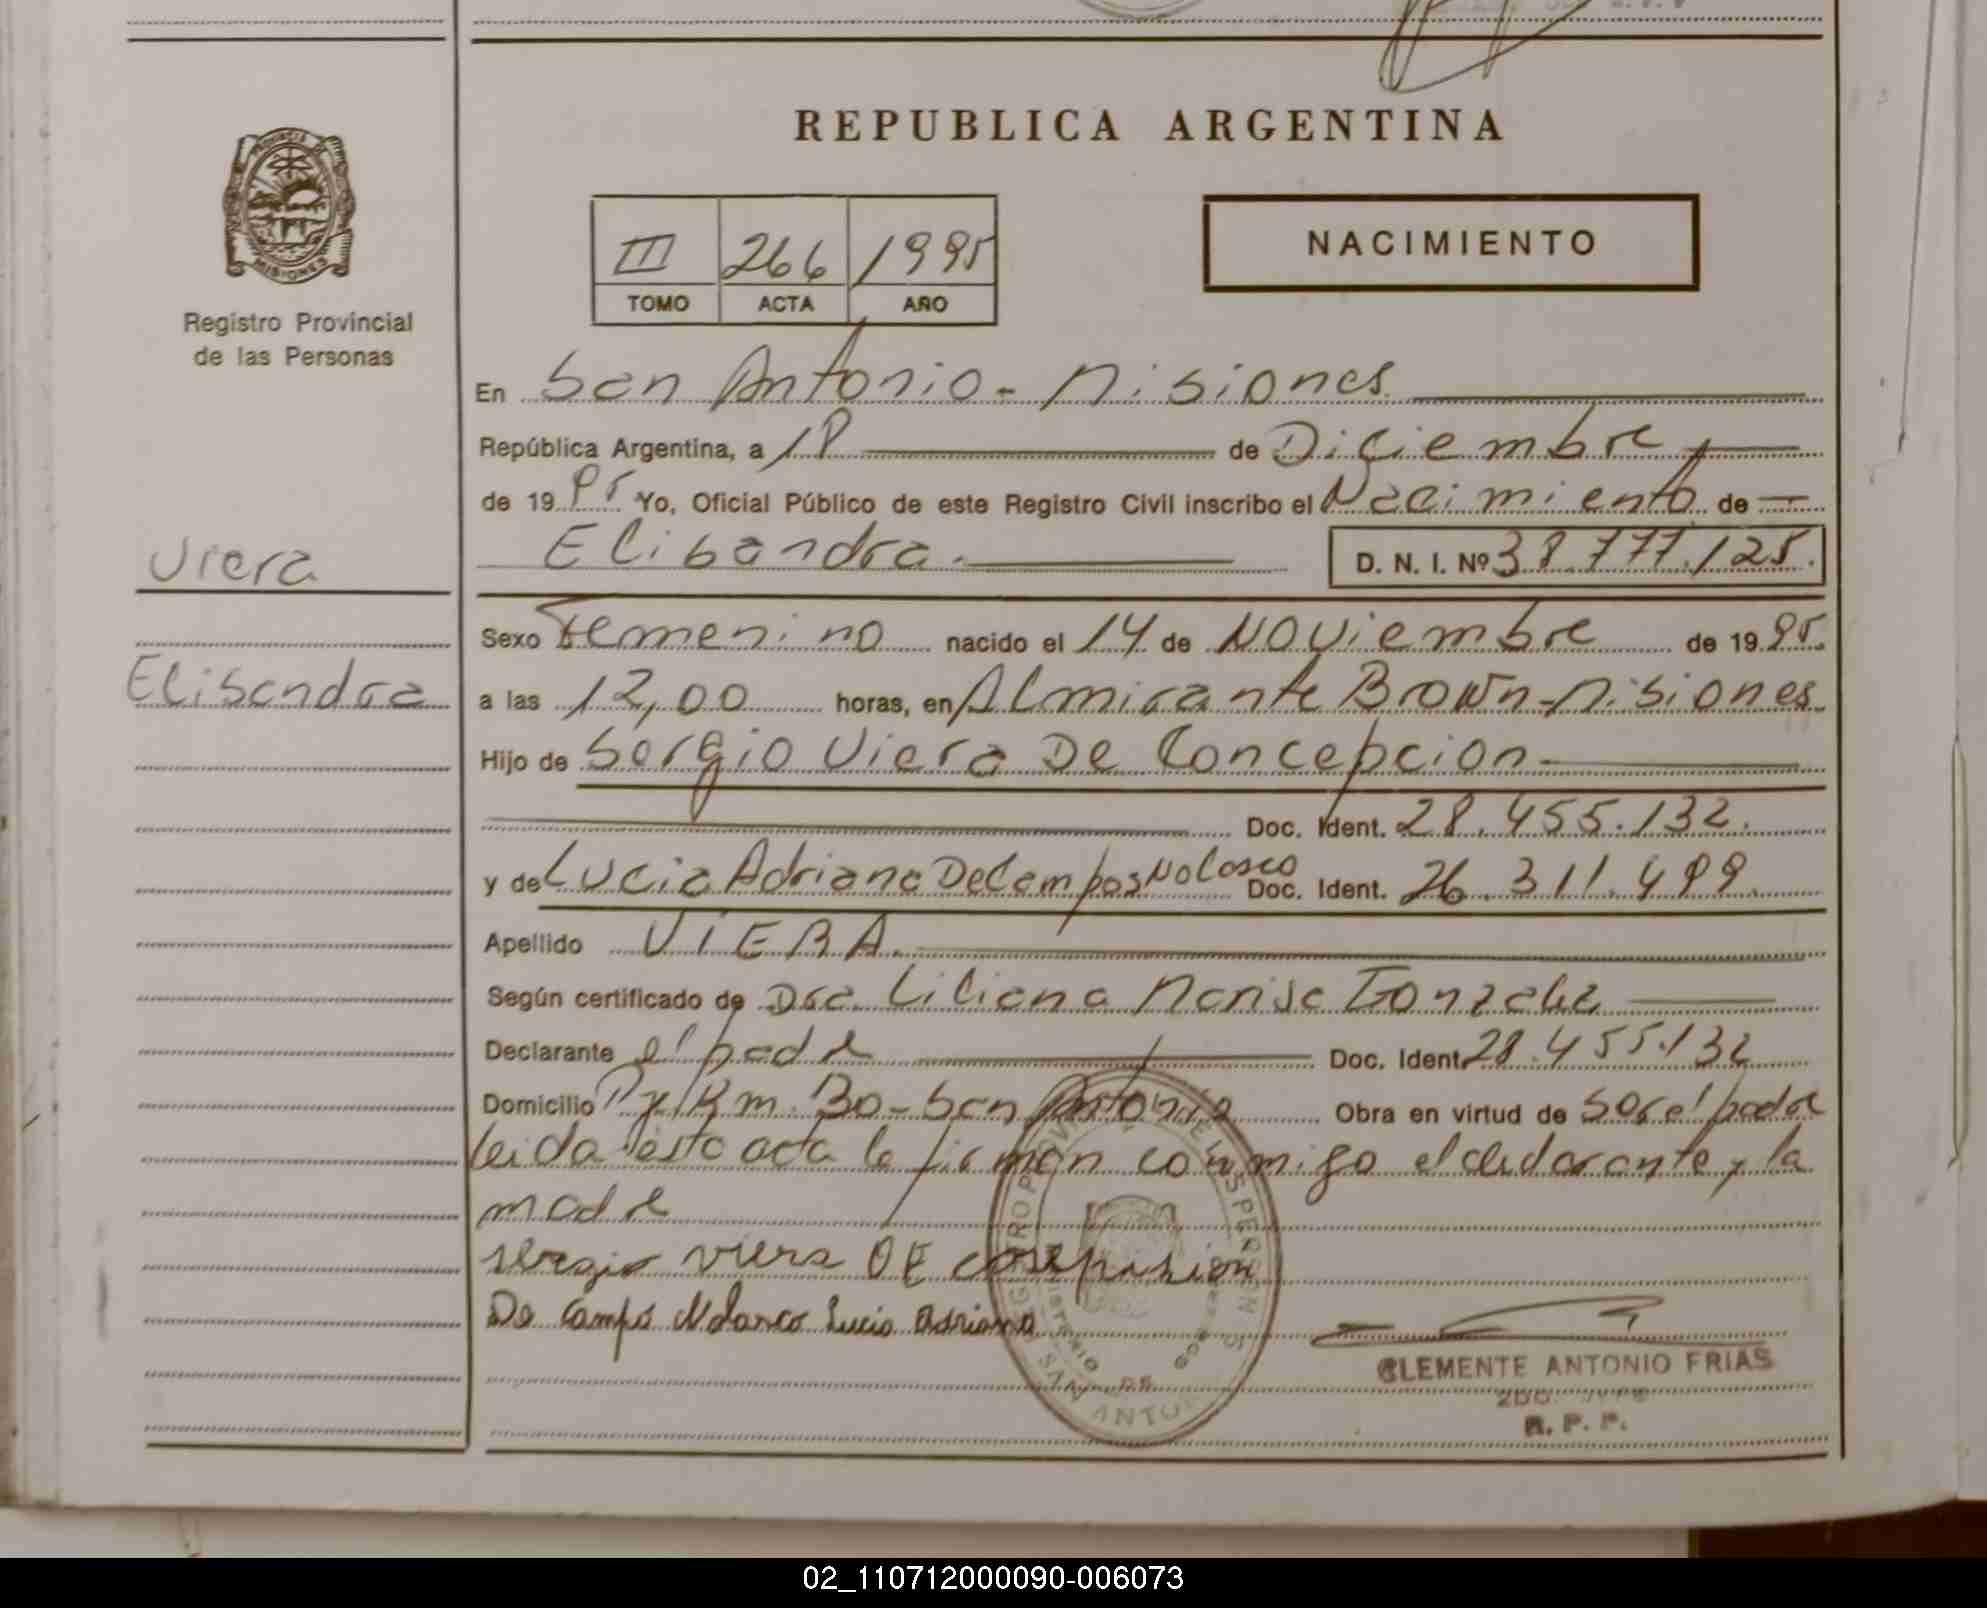 REPUBLICA ARGENTINA
PROVINCIA DE
MISIONES
Registro Provincial
de las Personas
III 266 1995
TOMO ACTA AÑO
NACIMIENTO
En San Antonio - Misiones
República Argentina, a 18 de Diciembre
de 1995 Yo, Oficial Público de este Registro Civil inscribo el Nacimiento de
Viera
Elisandra. D. N. I. Nº 38.777.125.
Sexo Femenino nacido el 14 de Noviembre de 1995.
Elisandra
a las 12,00 horas, en Almirante Brown - Misiones
Hijo de Sergio Viera De Concepcion
Doc. Ident. 28.455.132.
y de Lucia Adriana De Campos Nolasco Doc. Ident. 26.311.499.
Apellido VIERA.
Según certificado de Dra. Liliana Marisa Gonzalez
Declarante el padre Doc. Ident. 28.455.132
Domicilio Py Km. 30 - San Antonio Obra en virtud de ser el padre
leida esta acta la firman conmigo el declarante y la
madre
sergio viera DE consepsion
De Campo Nolasco Lucia Adriana
CLEMENTE ANTONIO FRIAS
2DO. JEFE
R. P. P.
02_110712000090-006073